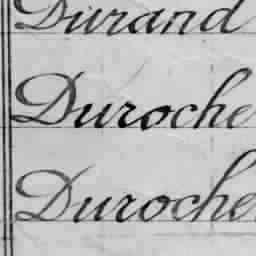 Durand
Duroche
Duroche